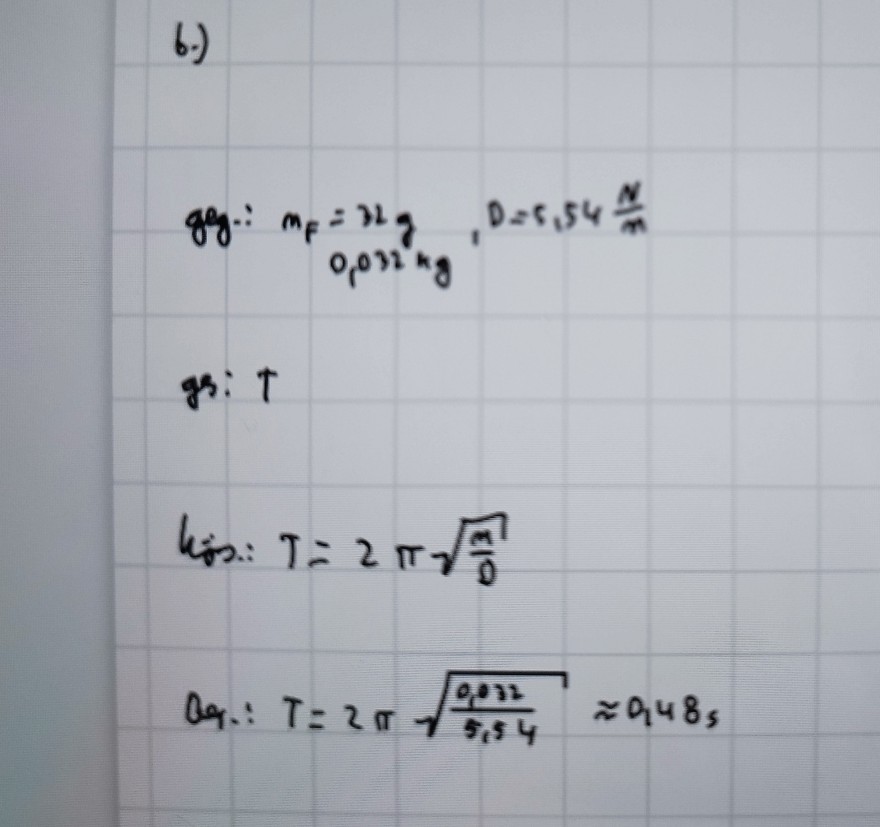 b.)
geg.: m_F = 32 g , D = 5,54 N/m
0,032 kg
gs: T
Lös.: T = 2 π √(m/D)
T = 2 π √(0,032/5,54) ≈ 0,48 s